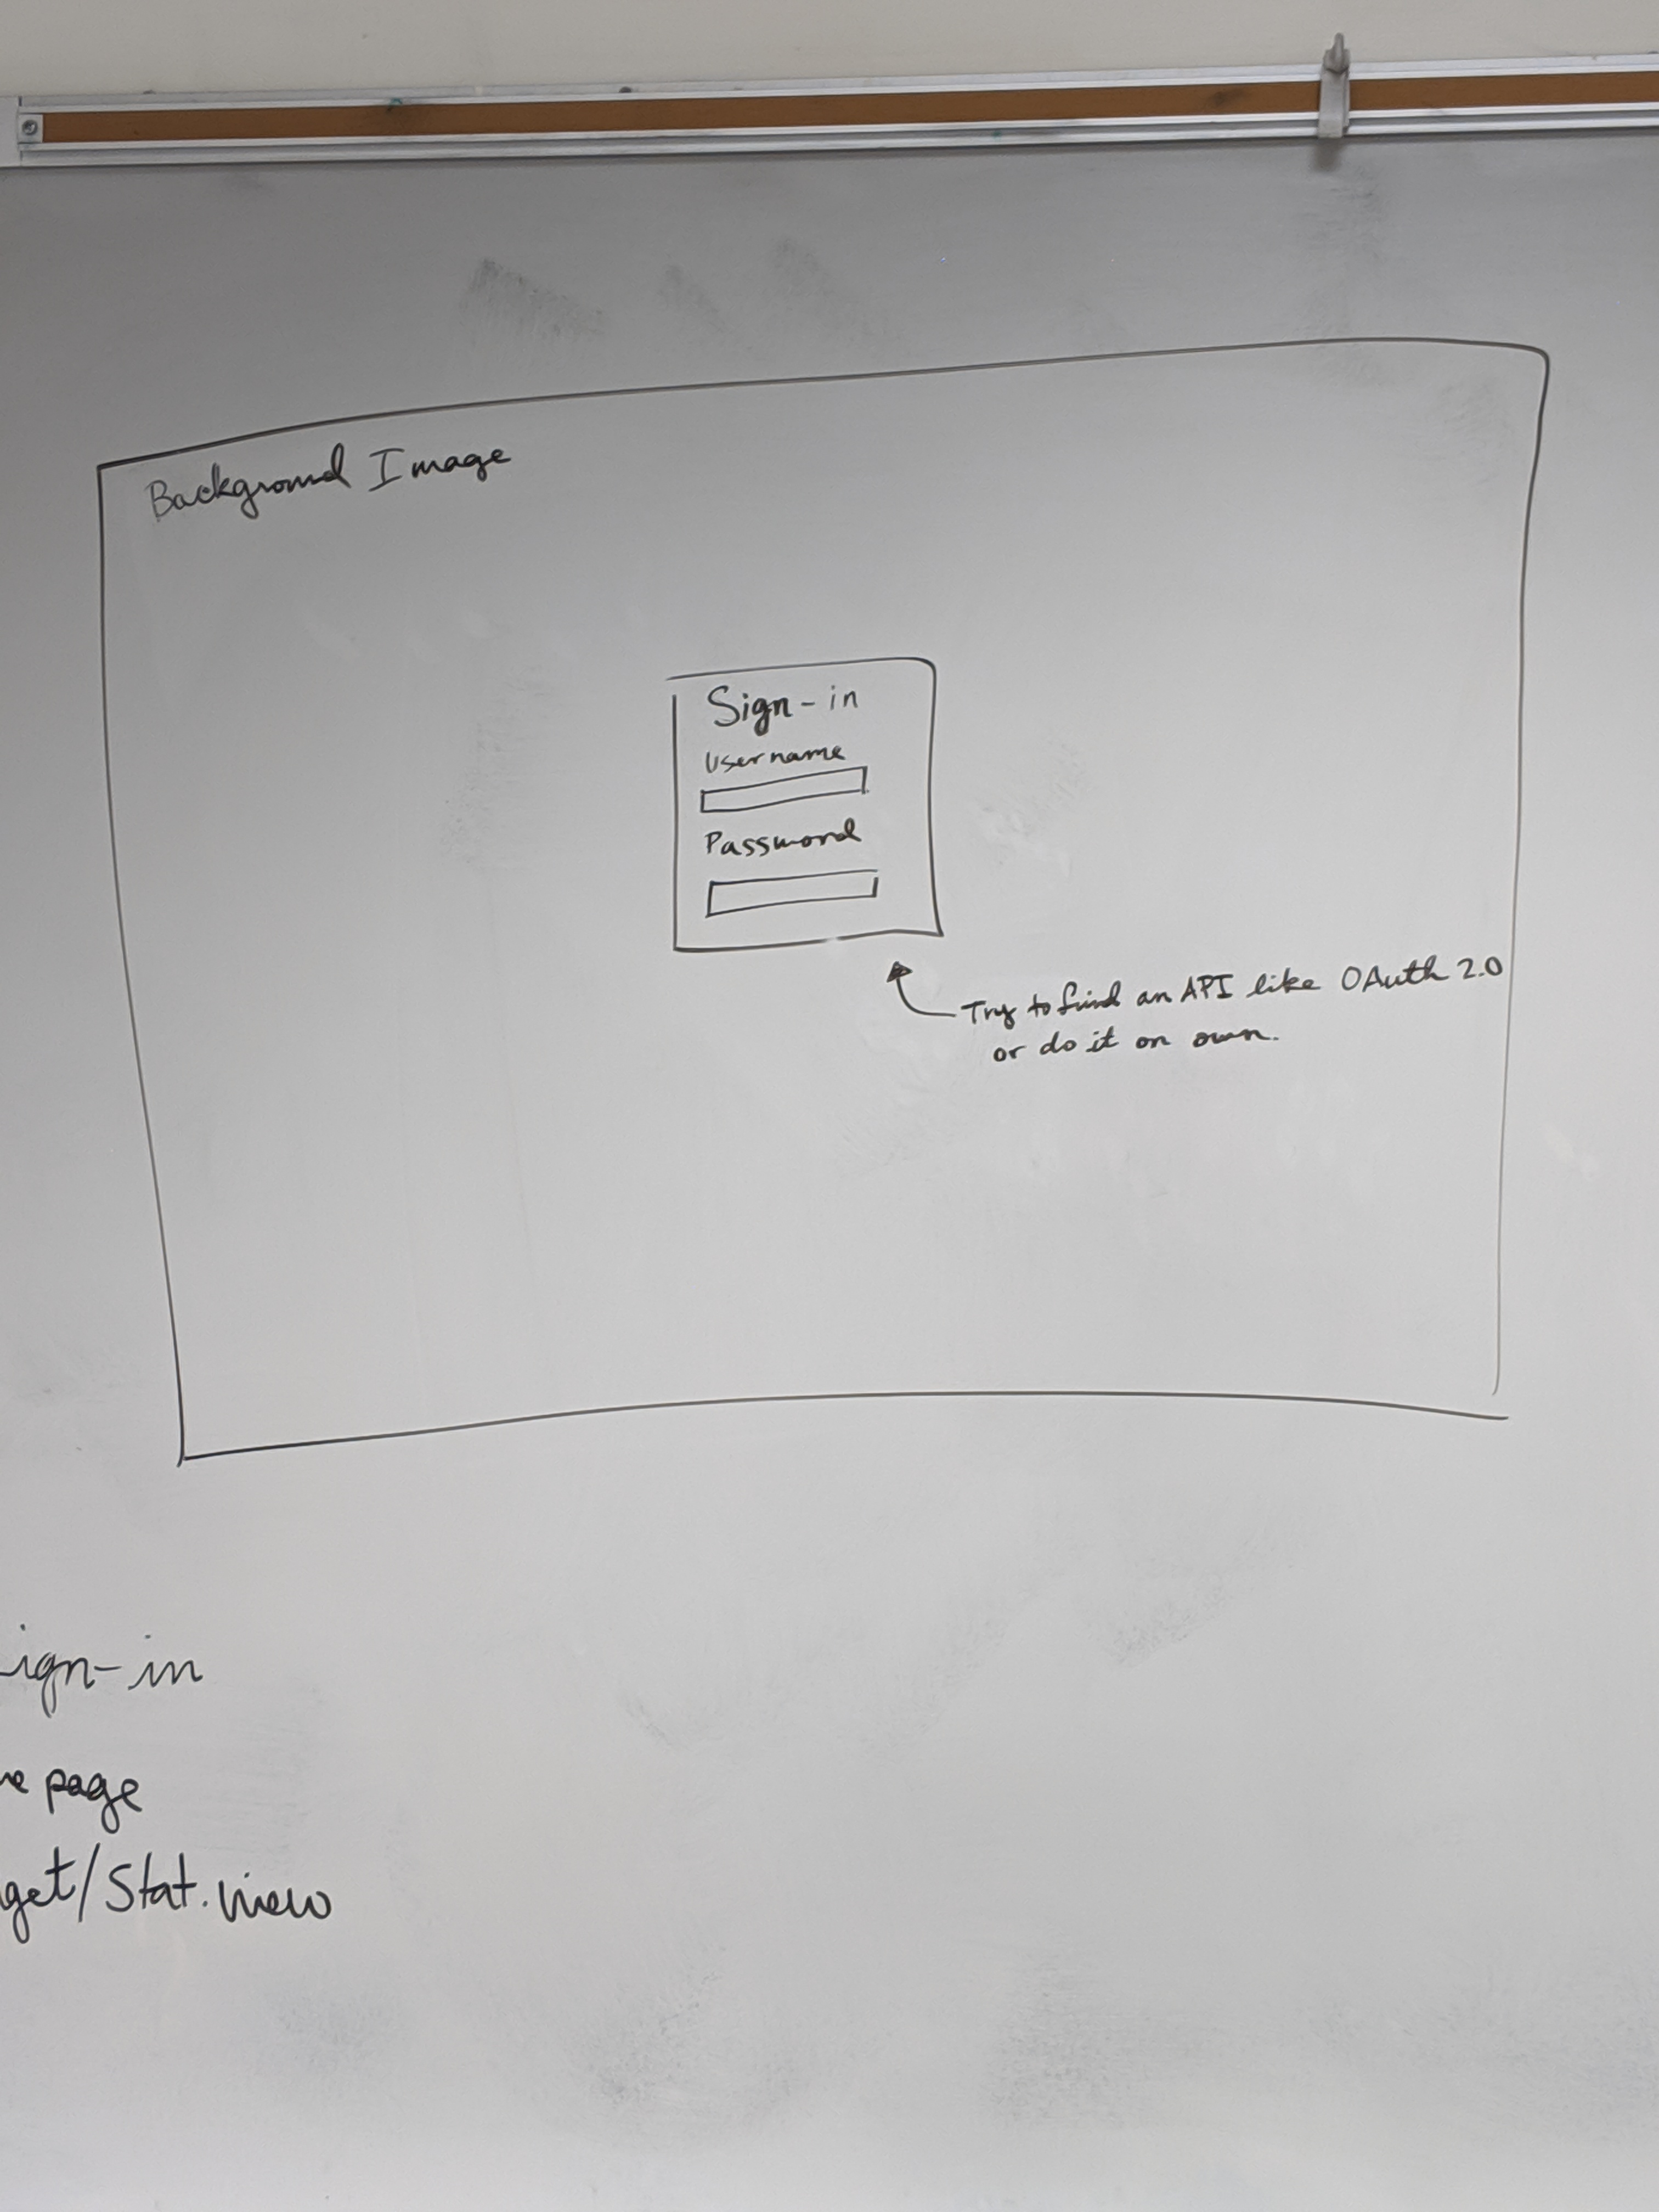 Background Image
Sign-in
Username
Password
Try to find an API like OAuth 2.0
or do it on own.
ign-in
page
get/Stat.view